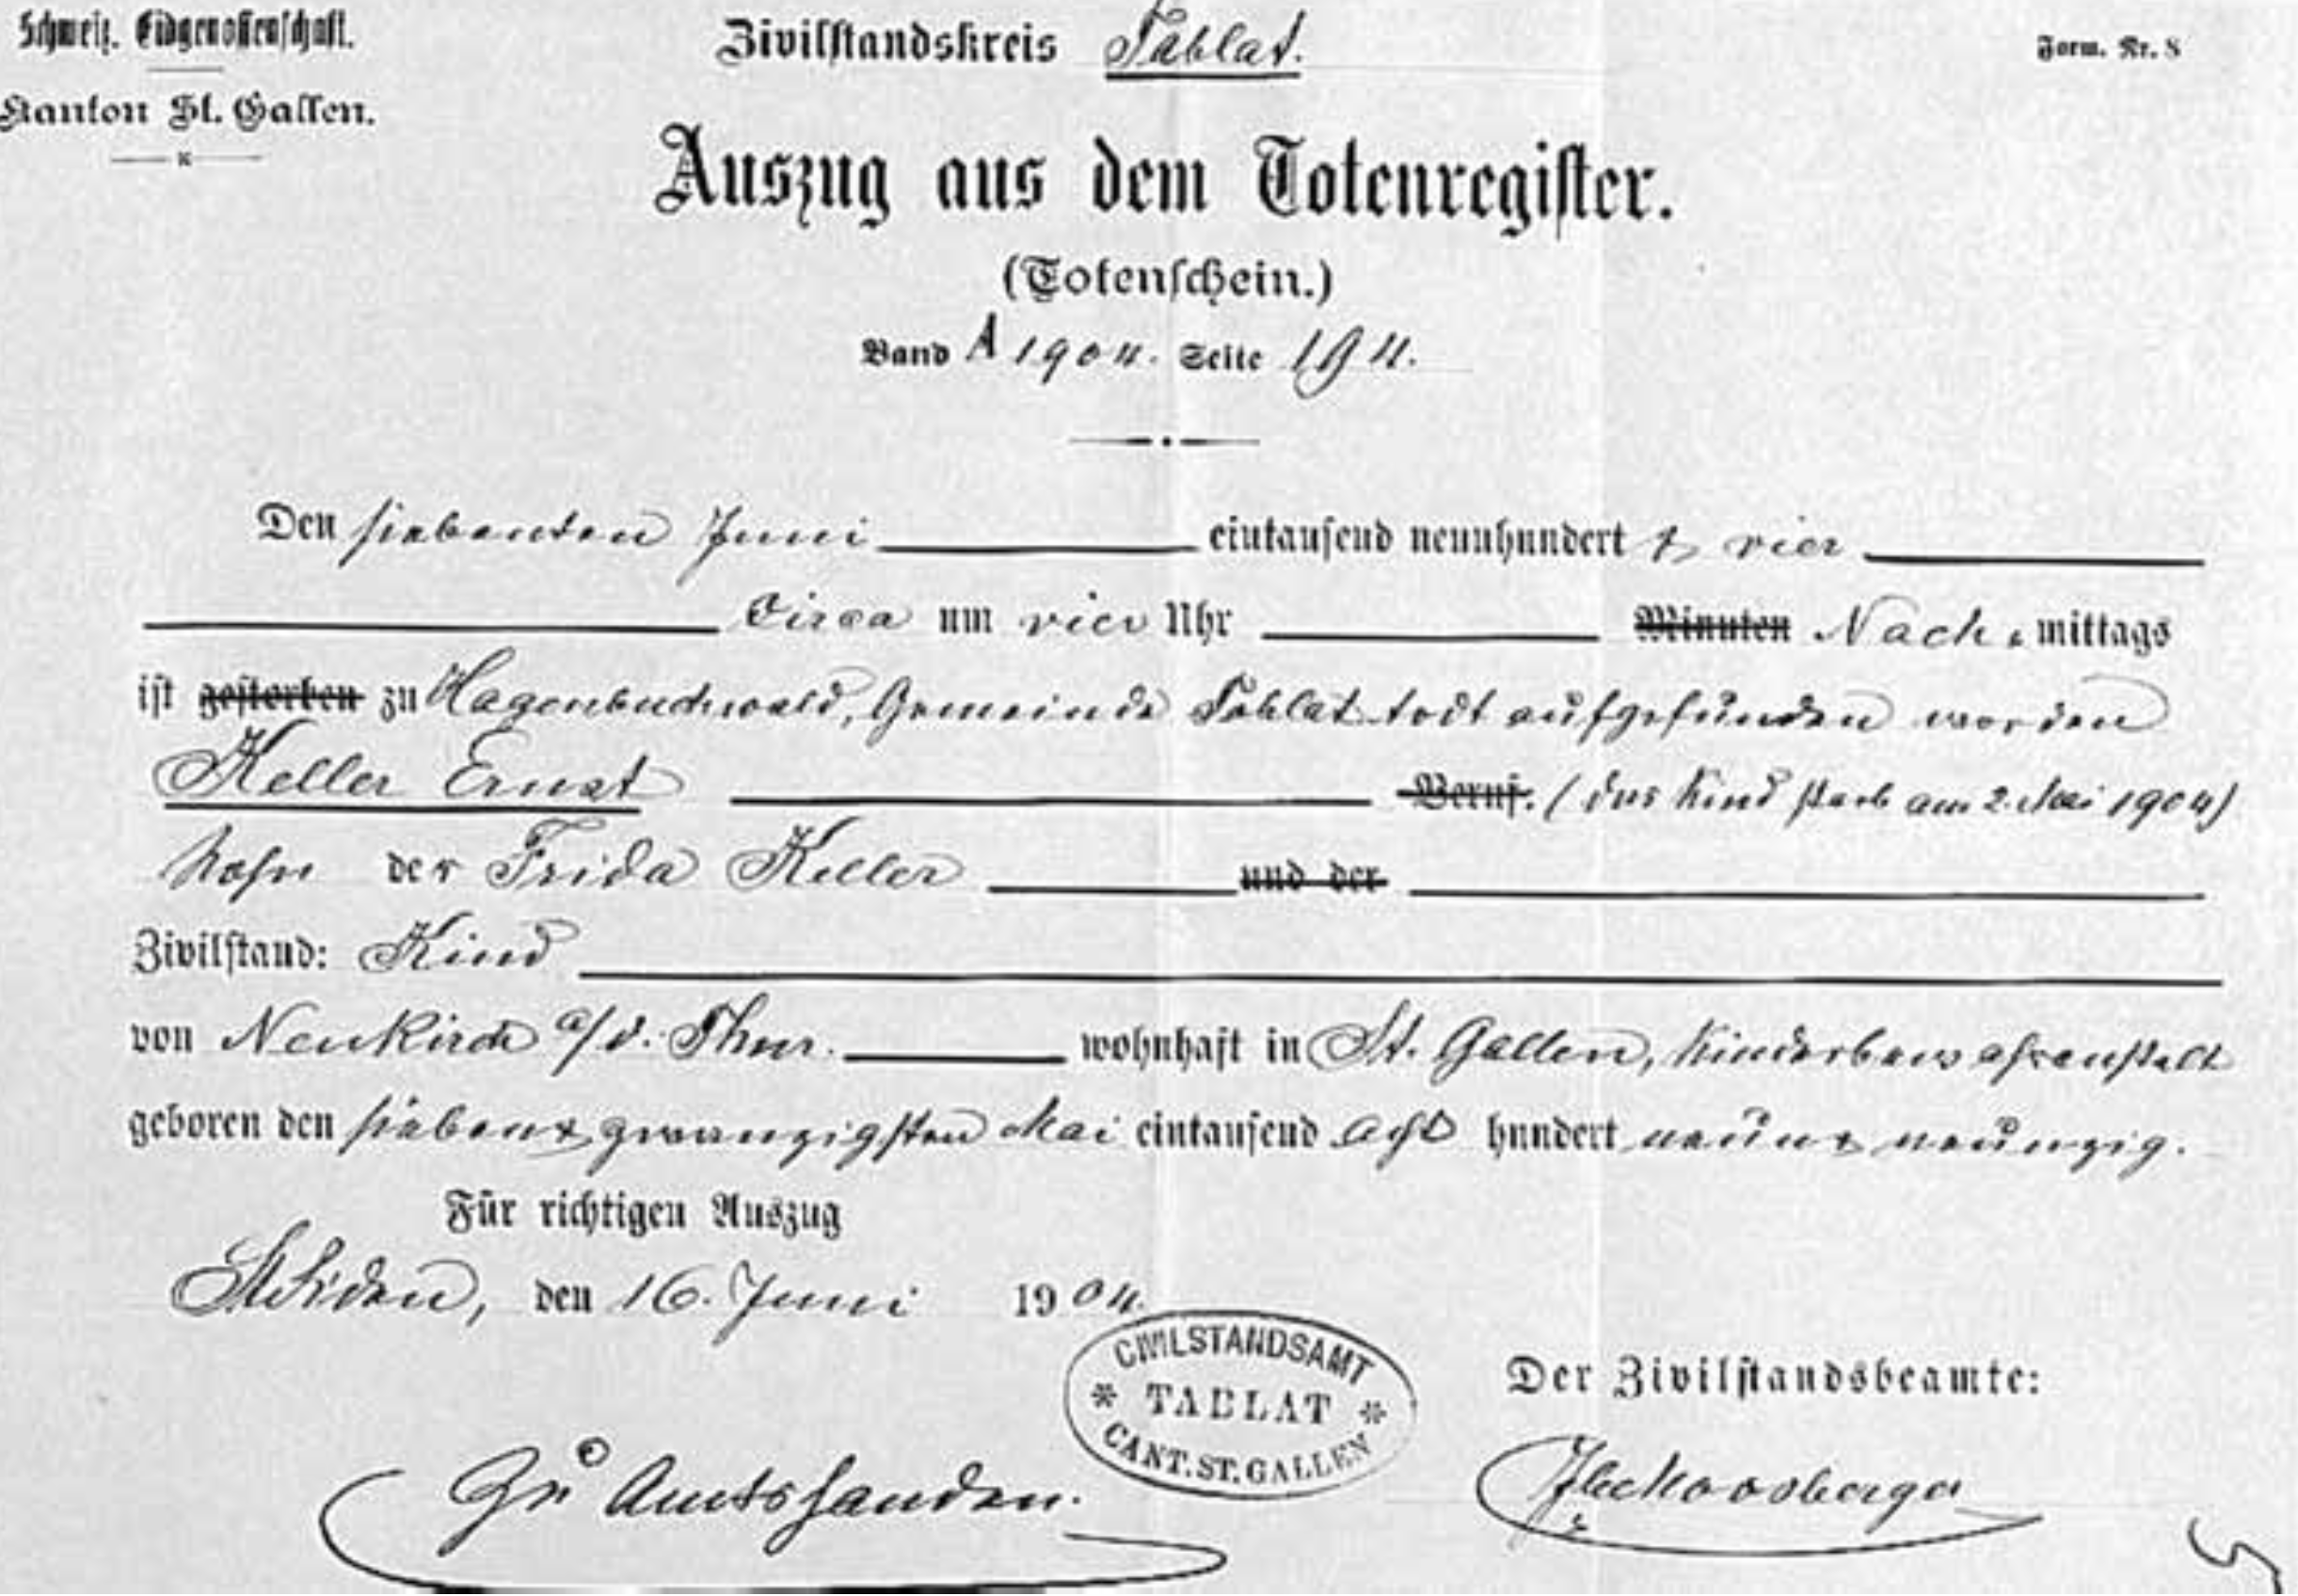 Schweiz. Eidgenossenschaft.
Kanton St. Gallen.
Zivilstandskreis Tablat.
Form. Nr. 8
Auszug aus dem Totenregister.
(Totenschein.)
Band A 1904. Seite 194.
Den siebenten Juni eintausend neunhundert & vier
Circa um vier Uhr Minuten Nach mittags
ist gestorben zu Hagenbuchwald, Gemeinde Tablat todt aufgefunden worden
Keller Ernst Beruf. (das Kind starb am 2. Mai 1904)
Sohn der Frida Keller und der
Zivilstand: Kind
von Neukirch a/d. Thur. wohnhaft in St. Gallen, Kinderbewahranstalt
geboren den sieben & zwanzigsten Mai eintausend acht hundert neun & neunzig.
Für richtigen Auszug
St. Fiden, den 16. Juni 1904.
CIVILSTANDSAMT
TABLAT
CANT. ST. GALLEN
Der Zivilstandsbeamte:
Zu Amtshanden.